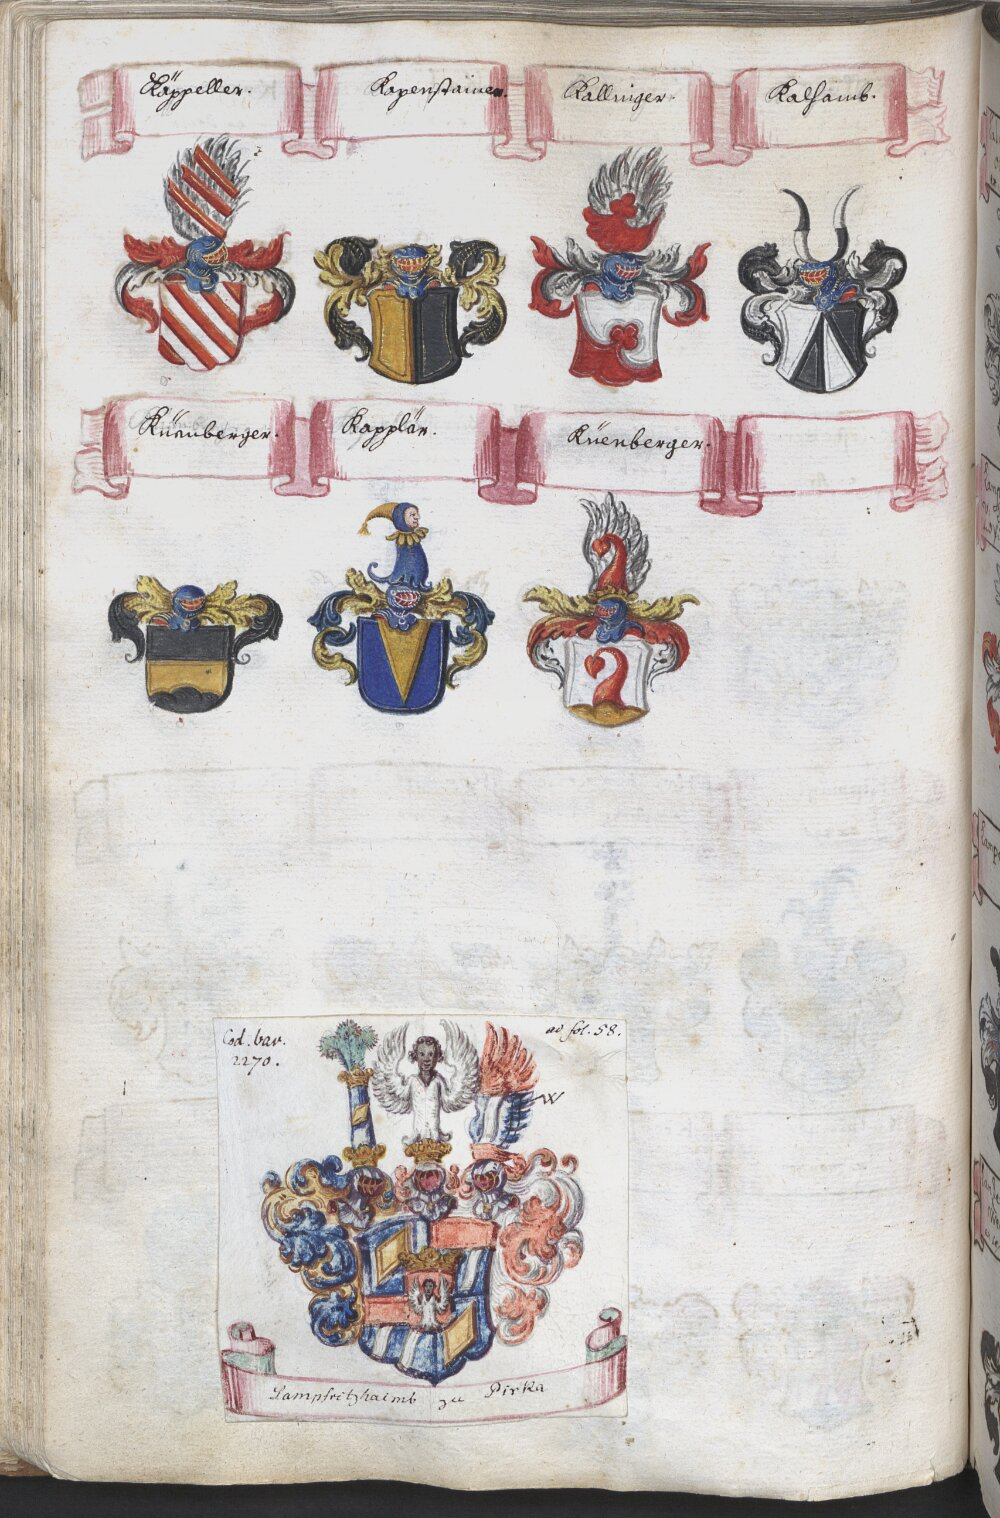 Käppeller.
Kapenstainer.
Kallinger.
Kalhamb.
Küenberger.
Kapplär.
Küenberger.
Cod. bav.
2270.
ad fol. 58.
W
Lampfritzhaimb zu Pirka